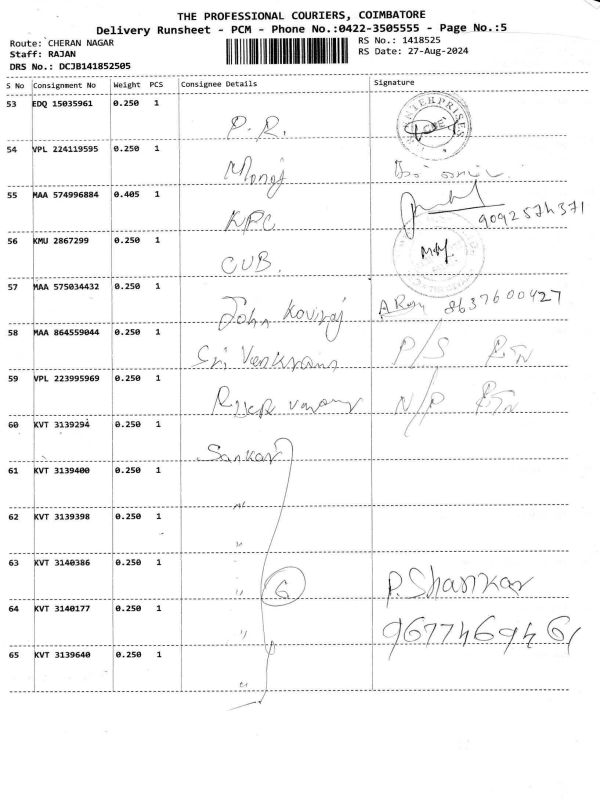 THE PROFESSIONAL COURIERS, COIMBATORE
Delivery Runsheet - PCM - Phone No.:0422-3505555 - Page No.:5
Route: CHERAN NAGAR
RS No.: 1418525
Staff: RAJAN
RS Date: 27-Aug-2024
DRS No.: DCJB141852505
S No Consignment No Weight PCS Consignee Details Signature
53 EDQ 15035961 0.250 1
P.R.
ENTERPRISES
54 VPL 224119595 0.250 1
Manoj
55 MAA 574996884 0.405 1
KPC
9092574371
56 KMU 2867299 0.250 1
CUB.
57 MAA 575034432 0.250 1
John Kaviraj 8637600427
58 MAA 864559044 0.250 1
Sri P/S RTN
59 VPL 223995969 0.250 1
N/P RTN
60 KVT 3139294 0.250 1
Sankar
61 KVT 3139400 0.250 1
"
62 KVT 3139398 0.250 1
"
63 KVT 3140386 0.250 1
" 6 P. Shankar
64 KVT 3140177 0.250 1
" 9677469461
65 KVT 3139640 0.250 1
"